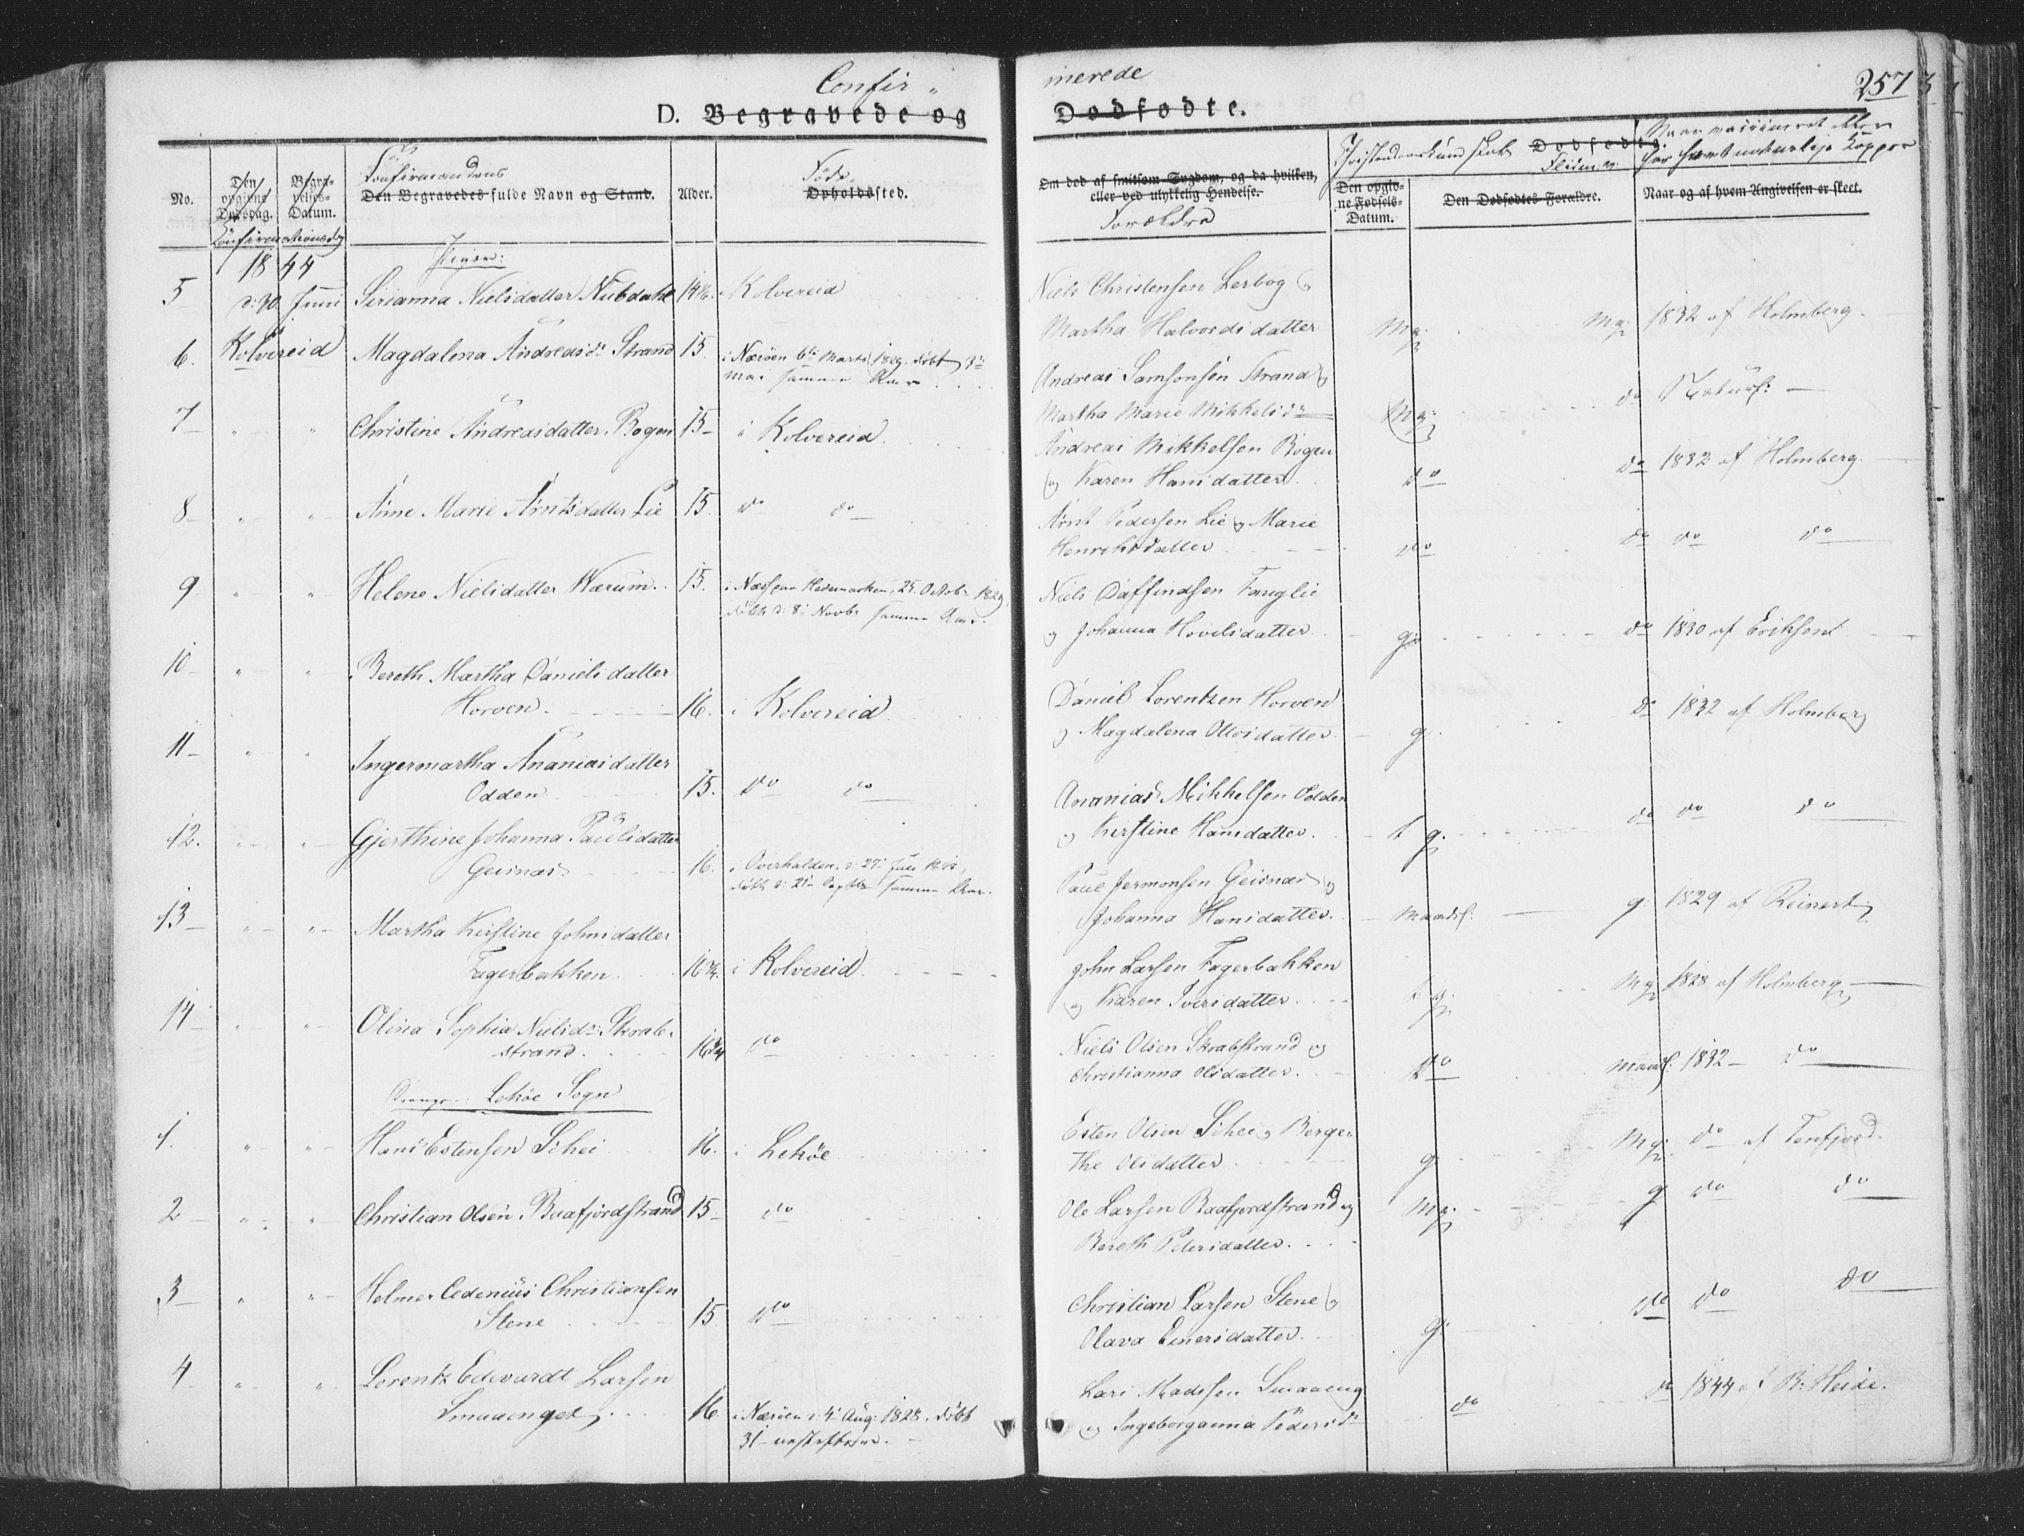 Confir-
merede
257
D. Begravede og
Dødfødte.
No.
Den opgivne Dødsdag.
Begravelses-Datum.
Confirmationsdag
Confirmandens
Den Begravedes fulde Navn og Stand.
Alder.
Føde-
Opholdssted.
Om død af smitsom Sygdom, og da hvilken, eller ved ulykkelig Hendelse.
Forældre
Christendomskundskab
Dødfødte.
Flid
Den opgivne Fødsels-Datum.
Den Dødfødtes Forældre.
Naar vaccineret eller
har havt naturlige Kopper
Naar og af hvem Angivelsen er skeet.
1844
Piger:
5 d: 30 Juni Sirianna Nielsdatter Nubdahl i Kolvereid
Niels Christensen Lerbog og
Martha Halvordsdatter Mg: Mg: 1832 af Holmberg
6. Kolvereid Magdalena Andreasdr Strand 15. i Nærøen 6te Marts 1829. døbt 3de
Mai samme Aar
Andreas Samsonsen Strand og
Martha Marie Mikkelsdr Mg: do Naturl:
7 Christine Andreasdatter Bogen 15 i Kolvereid
Andreas Mikkelsen Bogen
og Karen Hansdatter do do 1832 af Holmberg
8 Anne Marie Arntsdatter Lie 15. do do
Arnt Pedersen Lie og Marie
Henriksdatter do do do do
9 Helene Nielsdatter Wærum 15. i Næs paa Hedemarken, 25. Octobr 1829,
døbt d: 8 Novbr samme Aar.
Niels Daffindsen Fanglie
og Johanna Hovelsdatter g: do 1830 af Eriksen
10 Bereth Martha Danielsdatter
Horven 16. i Kolvereid
Daniel Lorentzen Horven
og Magdalena Ottosdatter g. do 1832 af Holmberg
11 Ingermartha Ananiasdatter
Odden 15. do do
Ananias Mikkelsen Odden
og Kirstine Hansdatter t g. do do do
12. Gjerthine Johanna Paulsdatter
Geisnæs 16. i Overhalden, d: 27 Juli
døbt d: 21 Septbr samme Aar.
Paul Jermonsen Geisnæs og
Johanna Hansdatter Maadl: g: 1829 af Reinert
13 Martha Kirstine Johnsdatter
Fagerbakken i Kolvereid
John Larsen Fagerbakken
og Karen Iversdatter t g. Mg: 1828 af Holmberg
14 Olina Sophia Nielsdr Skrab-
strand do
Niels Olsen Skrabstrand og
Christianna Olsdatter do Maadl: 1832 do
Drenge: Lekøe Sogn
1. Hans Estensen Schei 16. i Lekøe
Esten Olsen Schei og Berge-
the Olsdatter g Mg: do af Terrfjord.
2 Christian Olsen Baafjordstrand 15 do
Ole Larsen Baafjordstrand og
Bereth Petersdatter Mg. g do do
3 Helmer Cedenius Christiansen
Stene 15. do
Christian Larsen Stene og
Olava Einersdatter g do do do
4 Lorentz Edevardt Larsen
Smaaenget 16. i Nærøen d: 4 Aug: 1828. døbt
31 næstefter.
Lars Madssen Smaaeng
og Ingeborganna Pedersdr do do 1844 af B: Heide.